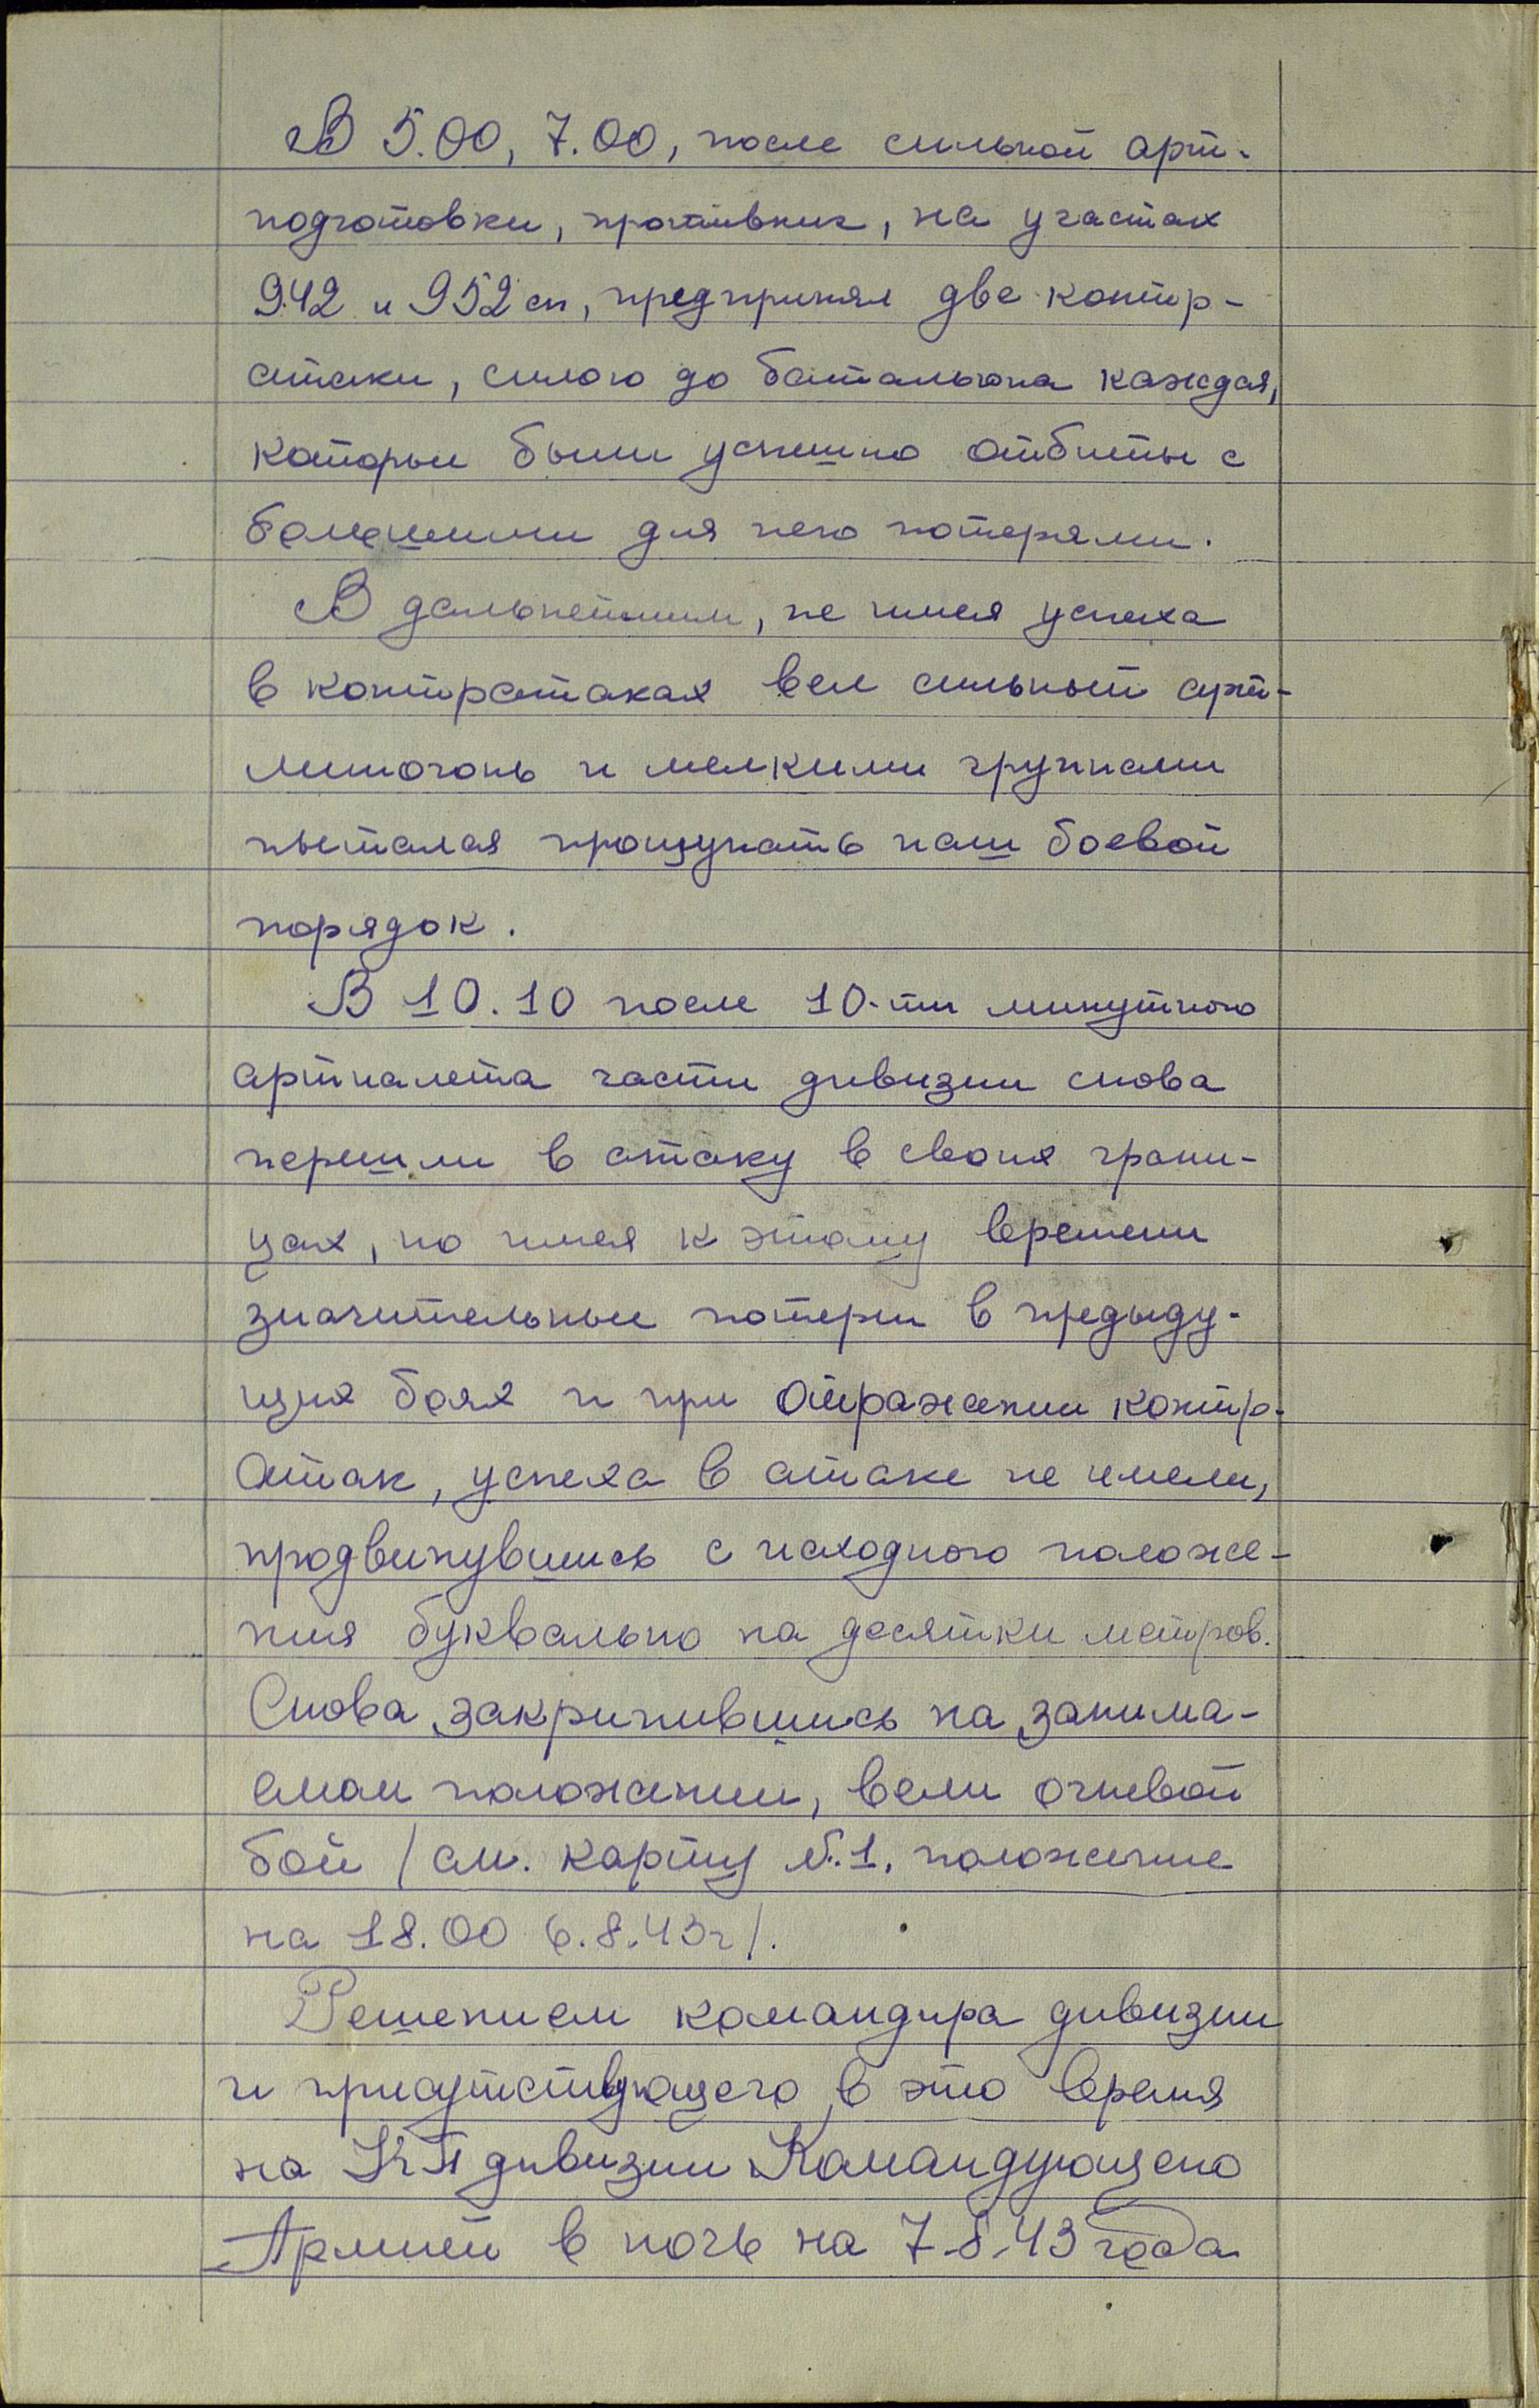 В 5.00, 7.00, после сильной арт-
подготовки, противник, на участках
942 и 952 сп, предпринял две контр-
атаки, силою до батальона каждая,
которые были успешно отбиты с
большими для него потерями.
В дальнейшим, не имея успеха
в контратаках вел сильный арт-
миногонь и мелкими группами
пытался прощупать наш боевой
порядок.
В 10.10 после 10-ти минутного
артналета части дивизии снова
перешли в атаку в своих грани-
цах, но имея к этому времени
значительные потери в предыду-
щих боях и при отражении контр-
атак, успеха в атаке не имели,
продвинувшись с исходного положе-
ния буквально на десятки метров.
Снова закрипившись на занима-
емом положении, вели огневой
бой /см. карту №.1, положение
на 18.00 6.8.43г/.
Решением командира дивизии
и присутствующего в это время
на КП дивизии Командующего
Армией в ночь на 7.8.43 года